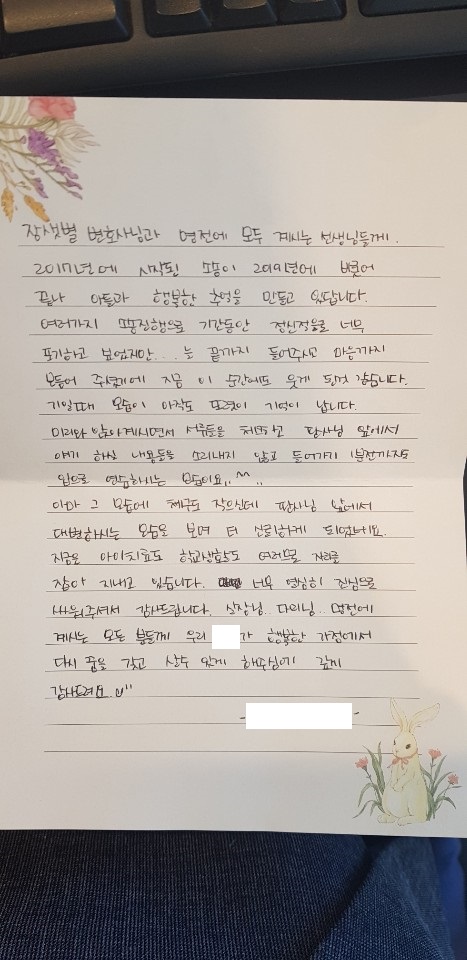 장샛별 변호사님과 명전에 모두 계시는 선생님들께.
2017년에 시작된 소송이 2019년에
끝나 아들과 행복한 추억을 만들고 있답니다.
여러가지 소송진행으로 기간동안 정신적을로 너무
포기하고 싶었지만... 는 끝까지 들어주시고 마음까지
보듬어 주셨기에 지금 이 순간에도 웃게 된것 같습니다.
기일때 모습이 아직도 또렷이 기억이 납니다.
미리와 앉아계시면서 서류들을 체크하고 판사님 앞에서
얘기 하실 내용들을 소리내지 않고 들어가기 1분전까지도
입으로 연습하시는 모습이요,, ^^,,
아마 그 모습에 체구도 작으신데 판사님 앞에서
대변하시는 모습을 보며 더 신뢰하게 되었네요.
지금은 아이치료도 학교생활도 여러므로 자리를
잡아 지내고 있습니다. 너무 열심히 진심으로
싸워주셔서 감사드립니다. 실장님.. 다의님.. 명전에
계시는 모든 분들께 우리 가 행복한 가정에서
다시 꿈을 갖고 살수 있게 해주심에 깊게
감사드려요